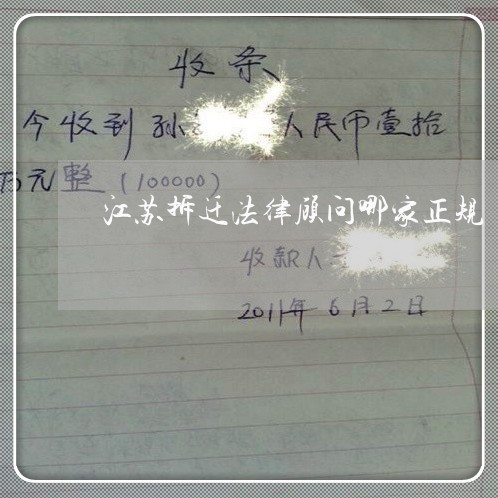 收条
今收到孙 人民币壹拾
万元整(100000)
江苏拆迁法律顾问哪家正规
收款人
2011年6月2日